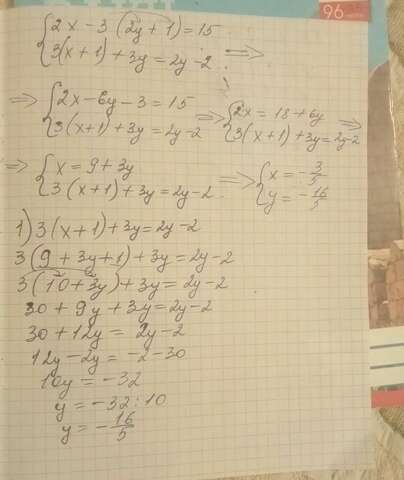 96
{2x - 3(2y + 1) = 15
{3(x + 1) + 3y = 2y - 2 ⇒
⇒ {2x - 6y - 3 = 15 ⇒ {2x = 18 + 6y ⇒
{3(x+1) + 3y = 2y - 2 {3(x+1) + 3y = 2y - 2
⇒ {x = 9 + 3y ⇒ {x = -3/5
{3(x+1) + 3y = 2y - 2 {y = -16/5
1) 3(x+1) + 3y = 2y - 2
3(9 + 3y + 1) + 3y = 2y - 2
3(10 + 3y) + 3y = 2y - 2
30 + 9y + 3y = 2y - 2
30 + 12y = 2y - 2
12y - 2y = -2 - 30
10y = -32
y = -32 : 10
y = -16/5